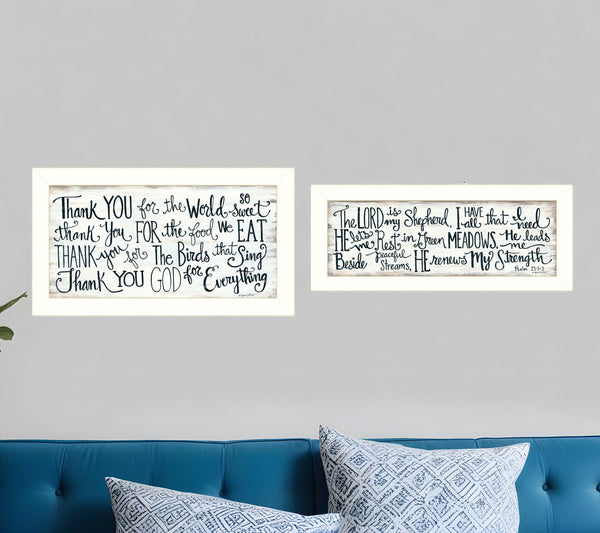 Thank YOU for the World so sweet
thank You FOR the food We EAT
THANK you for The Birds that Sing
Thank YOU GOD for Everything
The LORD is my Shepherd, I HAVE all that I need
HE lets me Rest in Green MEADOWS. He leads me
Beside peaceful streams, HE renews My Strength
Psalm 23:1-3